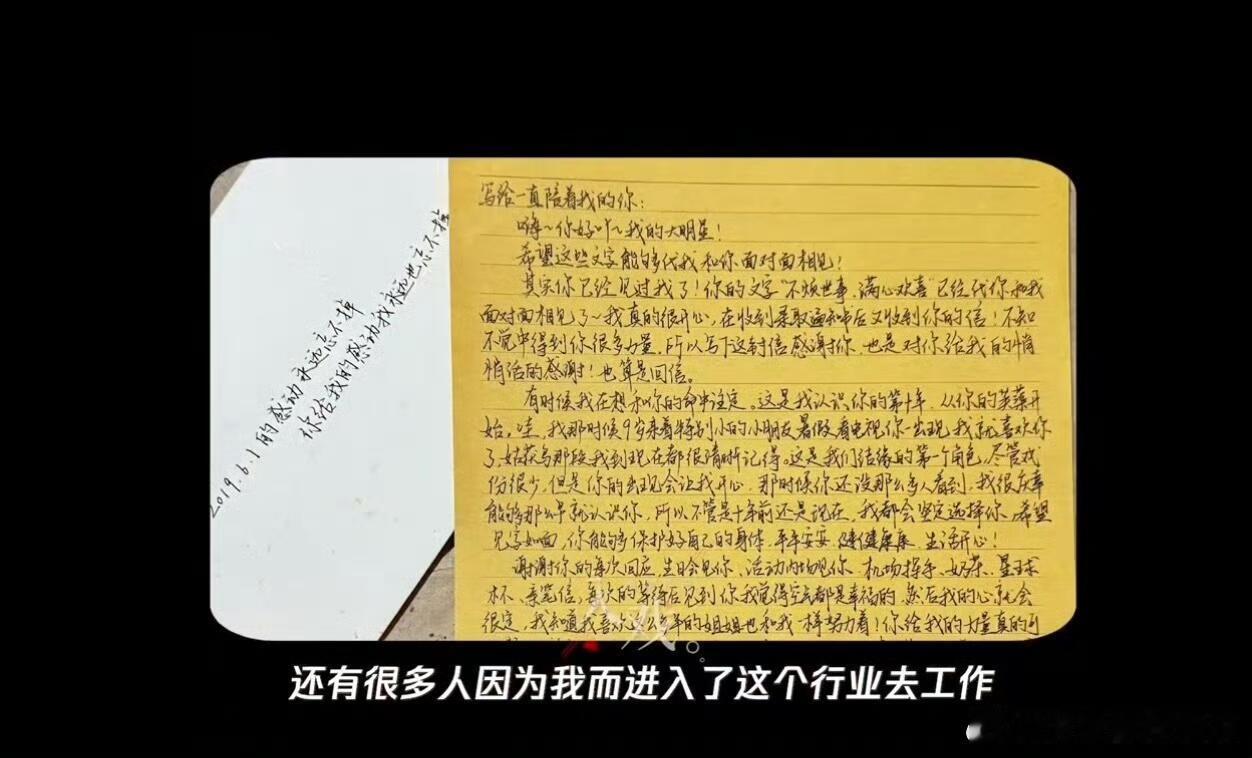 2019.6.1的感动永远忘不掉
你给我的感动我永远也忘不掉
写给一直陪着我的你:
嗨~你好吖~我的大明星!
希望这些文字能够代我和你面对面相见!
其实你已经见过我了!你的文字“不烦世事,满心欢喜”已经代你和我
面对面相见了~我真的很开心,在收到录取通知书后又收到你的信!不知
不觉中得到你很多力量,所以写下这封信感谢你,也是对你给我的悄
悄话的感谢!也算是回信。
有时候我在想和你的命中注定。这是我认识你的第十年,从你的芙蕖开
始,哇,我那时候9岁来着特别小的小朋友暑假看电视你一出现我就喜欢你
了,姑获鸟那段我到现在都很清晰记得。这是我们结缘的第一个角色,尽管戏
份很少,但是你的出现会让我开心,那时候你还没那么多人看到,我很庆幸
能够那么早就认识你,所以不管是十年前还是现在,我都会坚定选择你。希望
见字如面,你能够保护好自己的身体,平平安安,健健康康,生活开心!
谢谢你的每次回应,生日会见你、活动内场见你、机场挥手、奶茶、星球
杯、亲笔信,每次的等待后见到你我觉得空气都是幸福的,然后我的心就会
很定,我知道我喜欢这么多年的姐姐也和我一样努力着!你给我的力量真的可
还有很多人因为我而进入了这个行业去工作